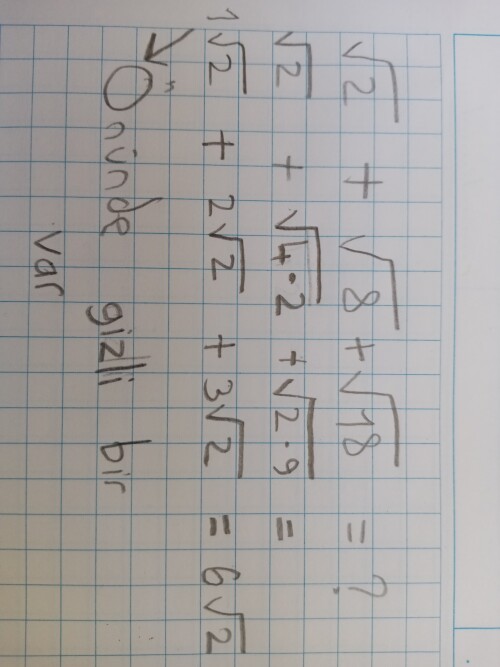 √2 + √8 + √18 = ?
√2 + √4·2 + √2·9 =
1√2 + 2√2 + 3√2 = 6√2
Önünde gizli bir
var